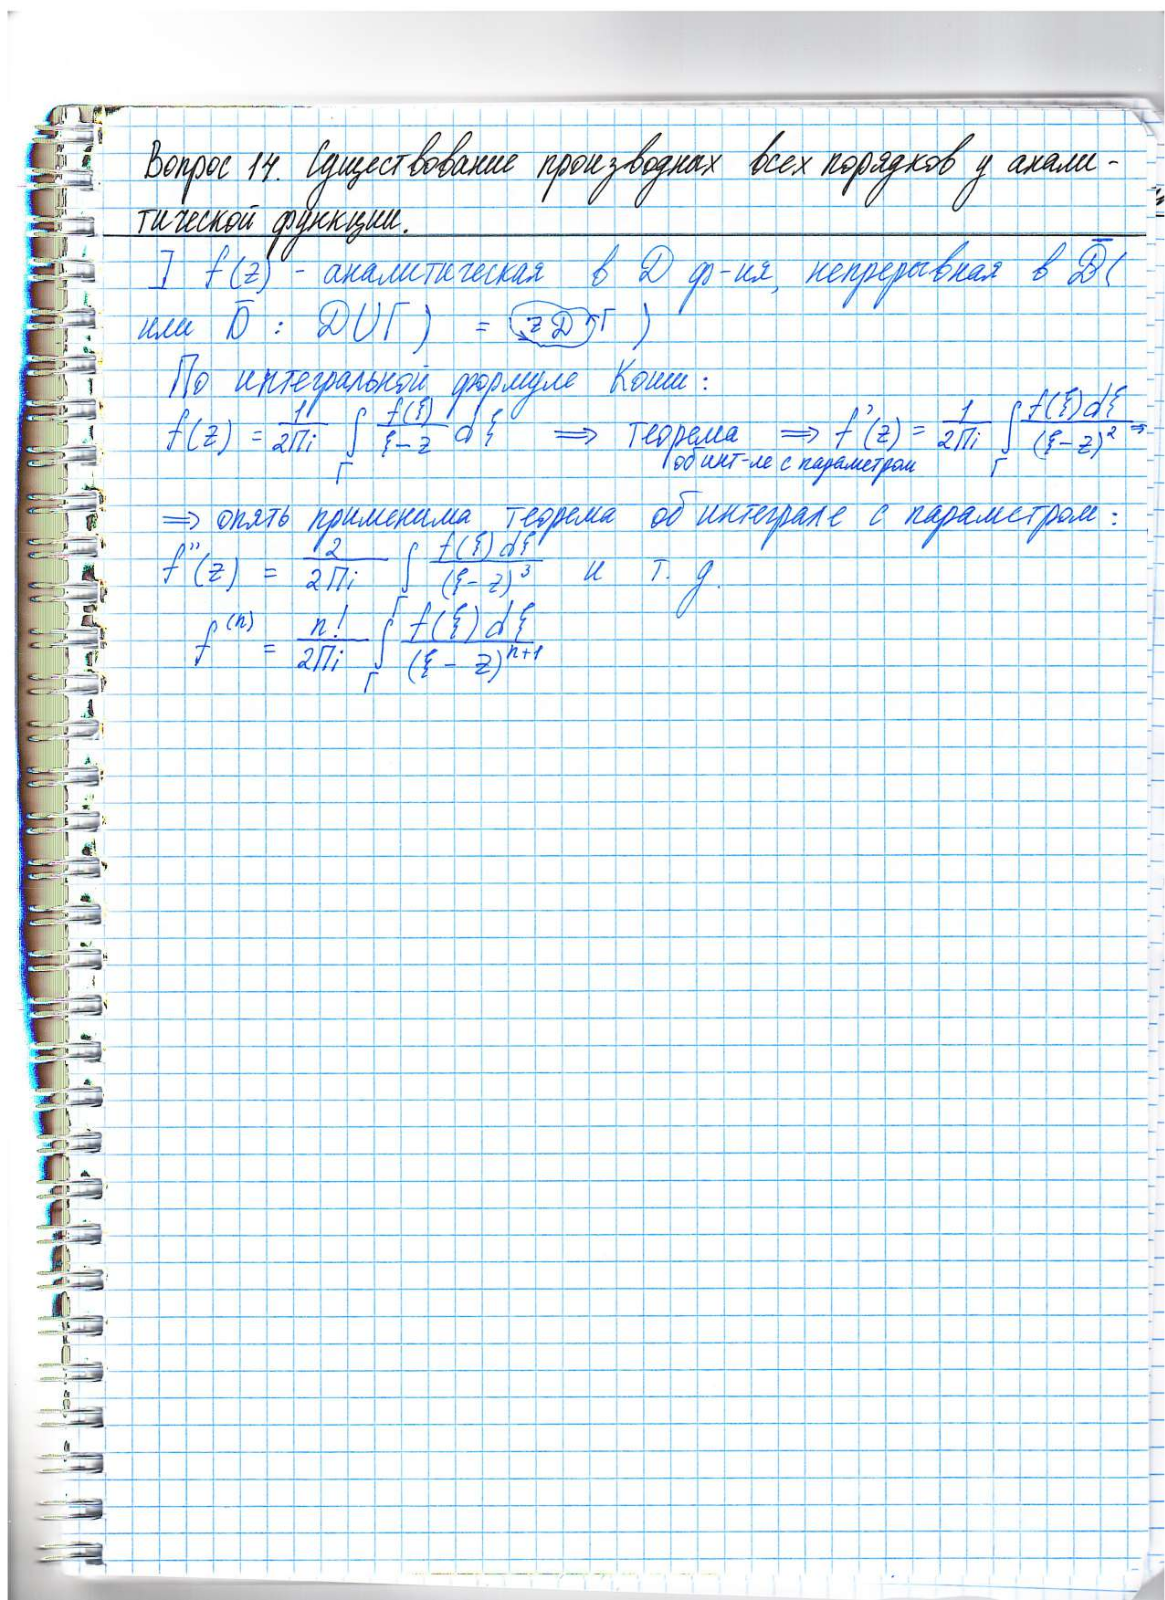 Вопрос 14. Существование производных всех порядков у анали-
тической функции.
] f(z) - аналитическая в D ф-ия, непрерывная в D̅ (
или D̅ : D∪Γ) = z D Γ )
По интегральной формуле Коши:
f(z) = 1/2πi ∫_Γ f(ξ)/(ξ-z) dξ ⇒ теорема об инт-ле с параметром ⇒ f'(z) = 1/2πi ∫_Γ f(ξ)dξ/(ξ-z)² ⇒
⇒ опять применима теорема об интеграле с параметром:
f''(z) = 2/2πi ∫_Γ f(ξ)dξ/(ξ-z)³ и т. д.
f^(n) = n!/2πi ∫_Γ f(ξ)dξ/(ξ-z)^(n+1)